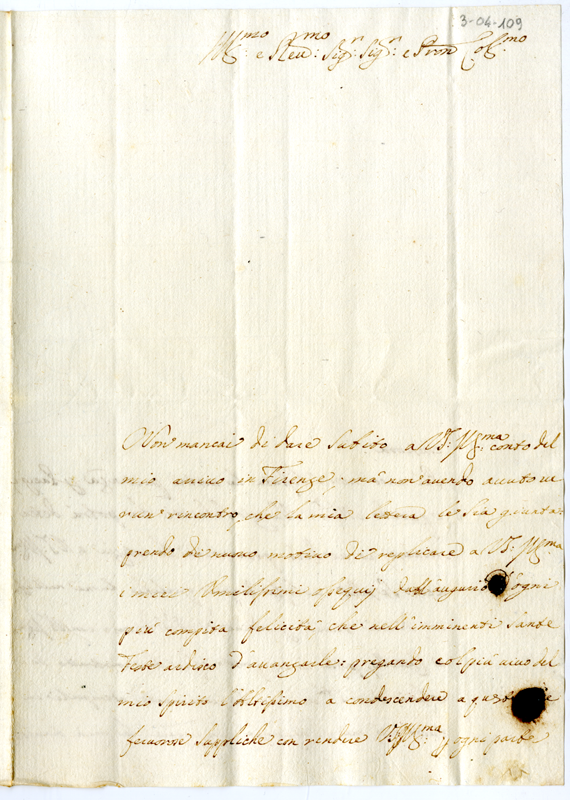 3-04-109
Ill.mo e Reu.mo Sig.r Sig.r e Pron Col.mo
Non mancai di dare subito a V.S. Ill.ma conto del
mio arriuo in Firenze; mà non auendo auuto ue
run' rincontro, che la mia lettera le sia giunta:
prendo di nuouo motiuo di replicare a V.S. Ill.ma
i miei Vmilissimi ossequij dall'augurio d'ogni
più compita felicità che nell'imminenti Sante
Feste ardisco d'auanzarle: pregando col più uiuo del
mio spirito l'Altissimo a condescendere a queste
feruorose suppliche con rendere V.S. Ill.ma p ogni parte